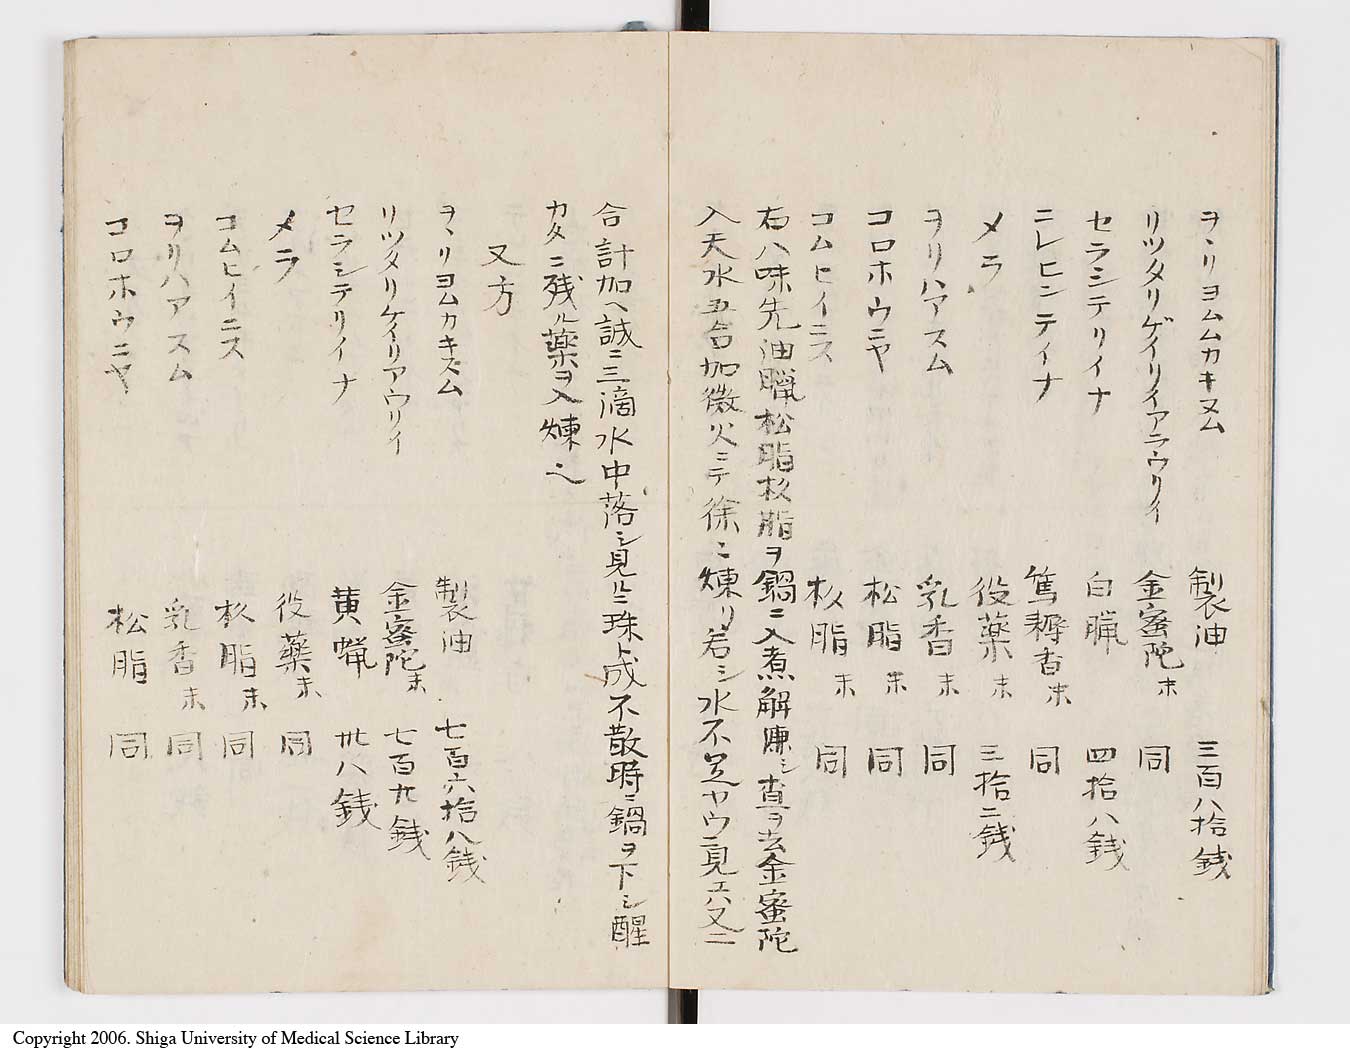 ヲヽリヨムムカキヌム 製油 三百八拾銭
リツタリゲイリイアラウリイ 金蜜陀末 同
セラシテリイナ 白臘 四拾八銭
ニレヒンテイナ 篤耨香末 同
メラ 役薬末 三拾二銭
ヲリハアスム 乳香末 同
コロホウニヤ 松脂末 同
コムヒイニス 杉脂末 同
右八味先油臘松脂杉脂ヲ鍋ニ入煮解シ査ヲ去金蜜陀
入天水五合加微火ニテ徐ニ煉リ若シ水不足ヤウニ見エハ又二
合計加ヘ誠ニ三滴水中落シ見ルニ珠ト成不散時ニ鍋ヲ下シ醒
カタニ残ル薬ヲ入煉ヘ
又方
ヲヽリヨムカキズム 製油 七百六拾八銭
リツタリケイリアウリイ 金蜜陀末 七百九銭
セラシテリイナ 黄蝋 卅八銭
メラ 役薬末 同
コムヒイニス 杉脂末 同
ヲリハアスム 乳香末 同
コロホウニヤ 松脂 同
Copyright 2006. Shiga University of Medical Science Library